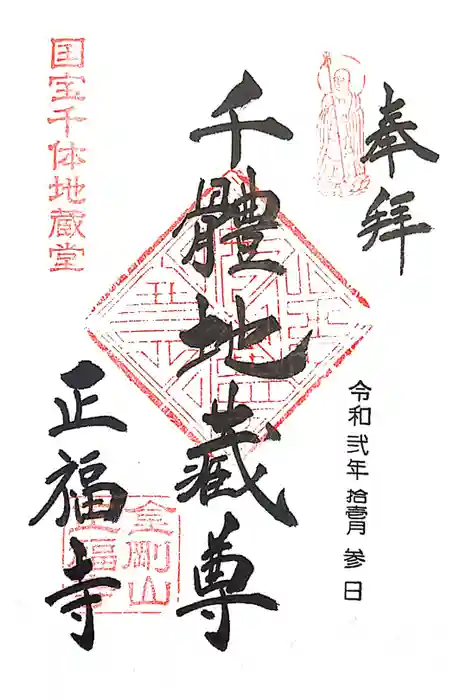 奉拝
令和弐年 拾壹月 参日
千體地蔵尊
正福寺
国宝千体地蔵堂
金剛山
正福寺